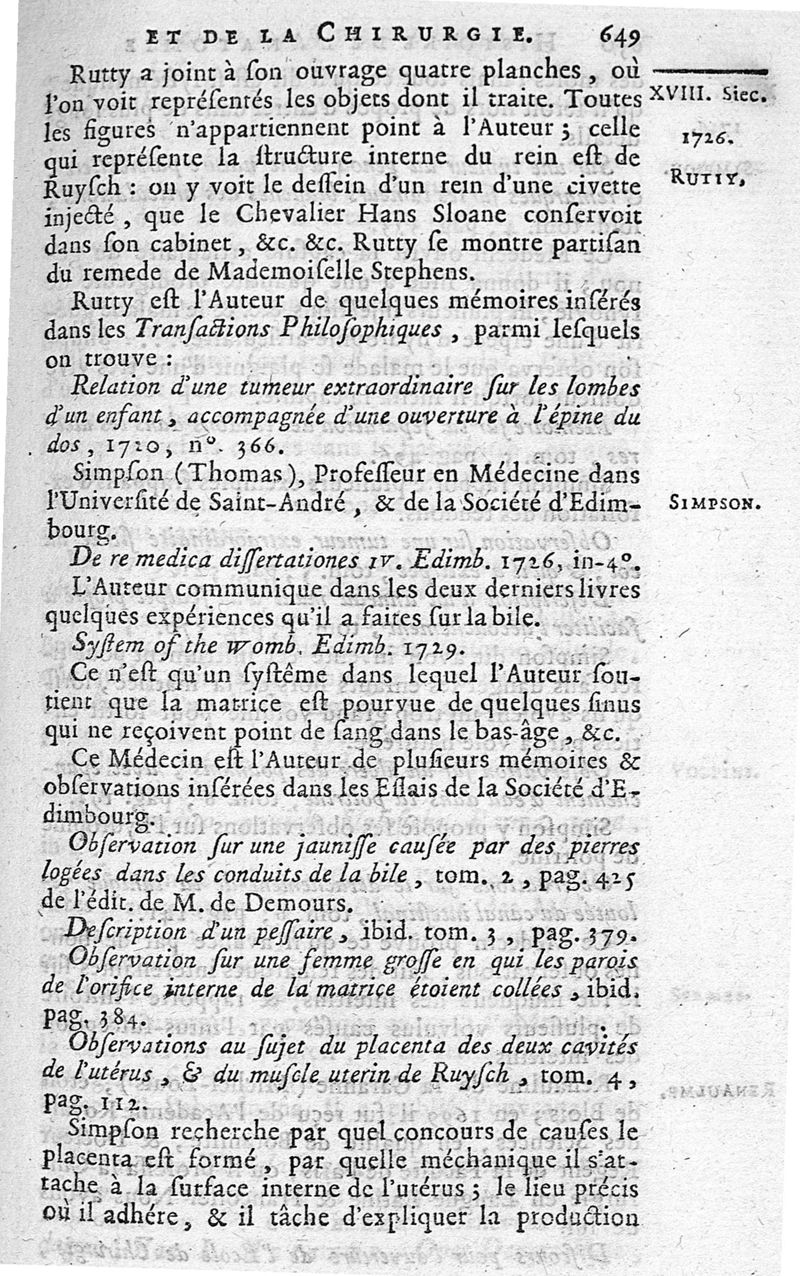 ET DE LA CHIRURGIE. 649
Rutty a joint à ſon ouvrage quatre planches, où
l'on voit repréſentés les objets dont il traite. Toutes
XVIII. Siec.
les figures n'appartiennent point à l'Auteur; celle
1726.
qui repréſente la ſtructure interne du rein eſt de
RUTTY,
Ruyſch: on y voit le deſſein d'un rein d'une civette
injecté, que le Chevalier Hans Sloane conſervoit
dans ſon cabinet, &c. &c. Rutty ſe montre partiſan
du remede de Mademoiſelle Stephens.
Rutty eſt l'Auteur de quelques mémoires inſérés
dans les Tranſactions Philoſophiques, parmi leſquels
on trouve:
Relation d'une tumeur extraordinaire ſur les lombes
d'un enfant, accompagnée d'une ouverture à l'épine du
dos, 1720, nº. 366.
Simpſon (Thomas), Profeſſeur en Médecine dans
l'Univerſité de Saint-André, & de la Société d'Edim-
SIMPSON.
bourg.
De re medica diſſertationes IV. Edimb. 1726, in-4º.
L'Auteur communique dans les deux derniers livres
quelques expériences qu'il a faites ſur la bile.
Syſtem of the Womb. Edimb. 1729.
Ce n'eſt qu'un ſyſtême dans lequel l'Auteur ſou-
tient que la matrice eſt pourvue de quelques ſinus
qui ne reçoivent point de ſang dans le bas-âge, &c.
Ce Médecin eſt l'Auteur de pluſieurs mémoires &
obſervations inſérées dans les Eſſais de la Société d'E-
dimbourg.
Obſervation ſur une jauniſſe cauſée par des pierres
logées dans les conduits de la bile, tom. 2, pag. 425
de l'édit. de M. de Demours.
Deſcription d'un peſſaire, ibid. tom. 3, pag. 379.
Obſervation ſur une femme groſſe en qui les parois
de l'orifice interne de la matrice étoient collées, ibid.
pag. 384.
Obſervations au ſujet du placenta des deux cavités
de l'utérus, & du muſcle uterin de Ruyſch, tom. 4,
pag. 112.
Simpſon recherche par quel concours de cauſes le
placenta eſt formé, par quelle méchanique il s'at-
tache à la ſurface interne de l'utérus; le lieu précis
où il adhére, & il tâche d'expliquer la production